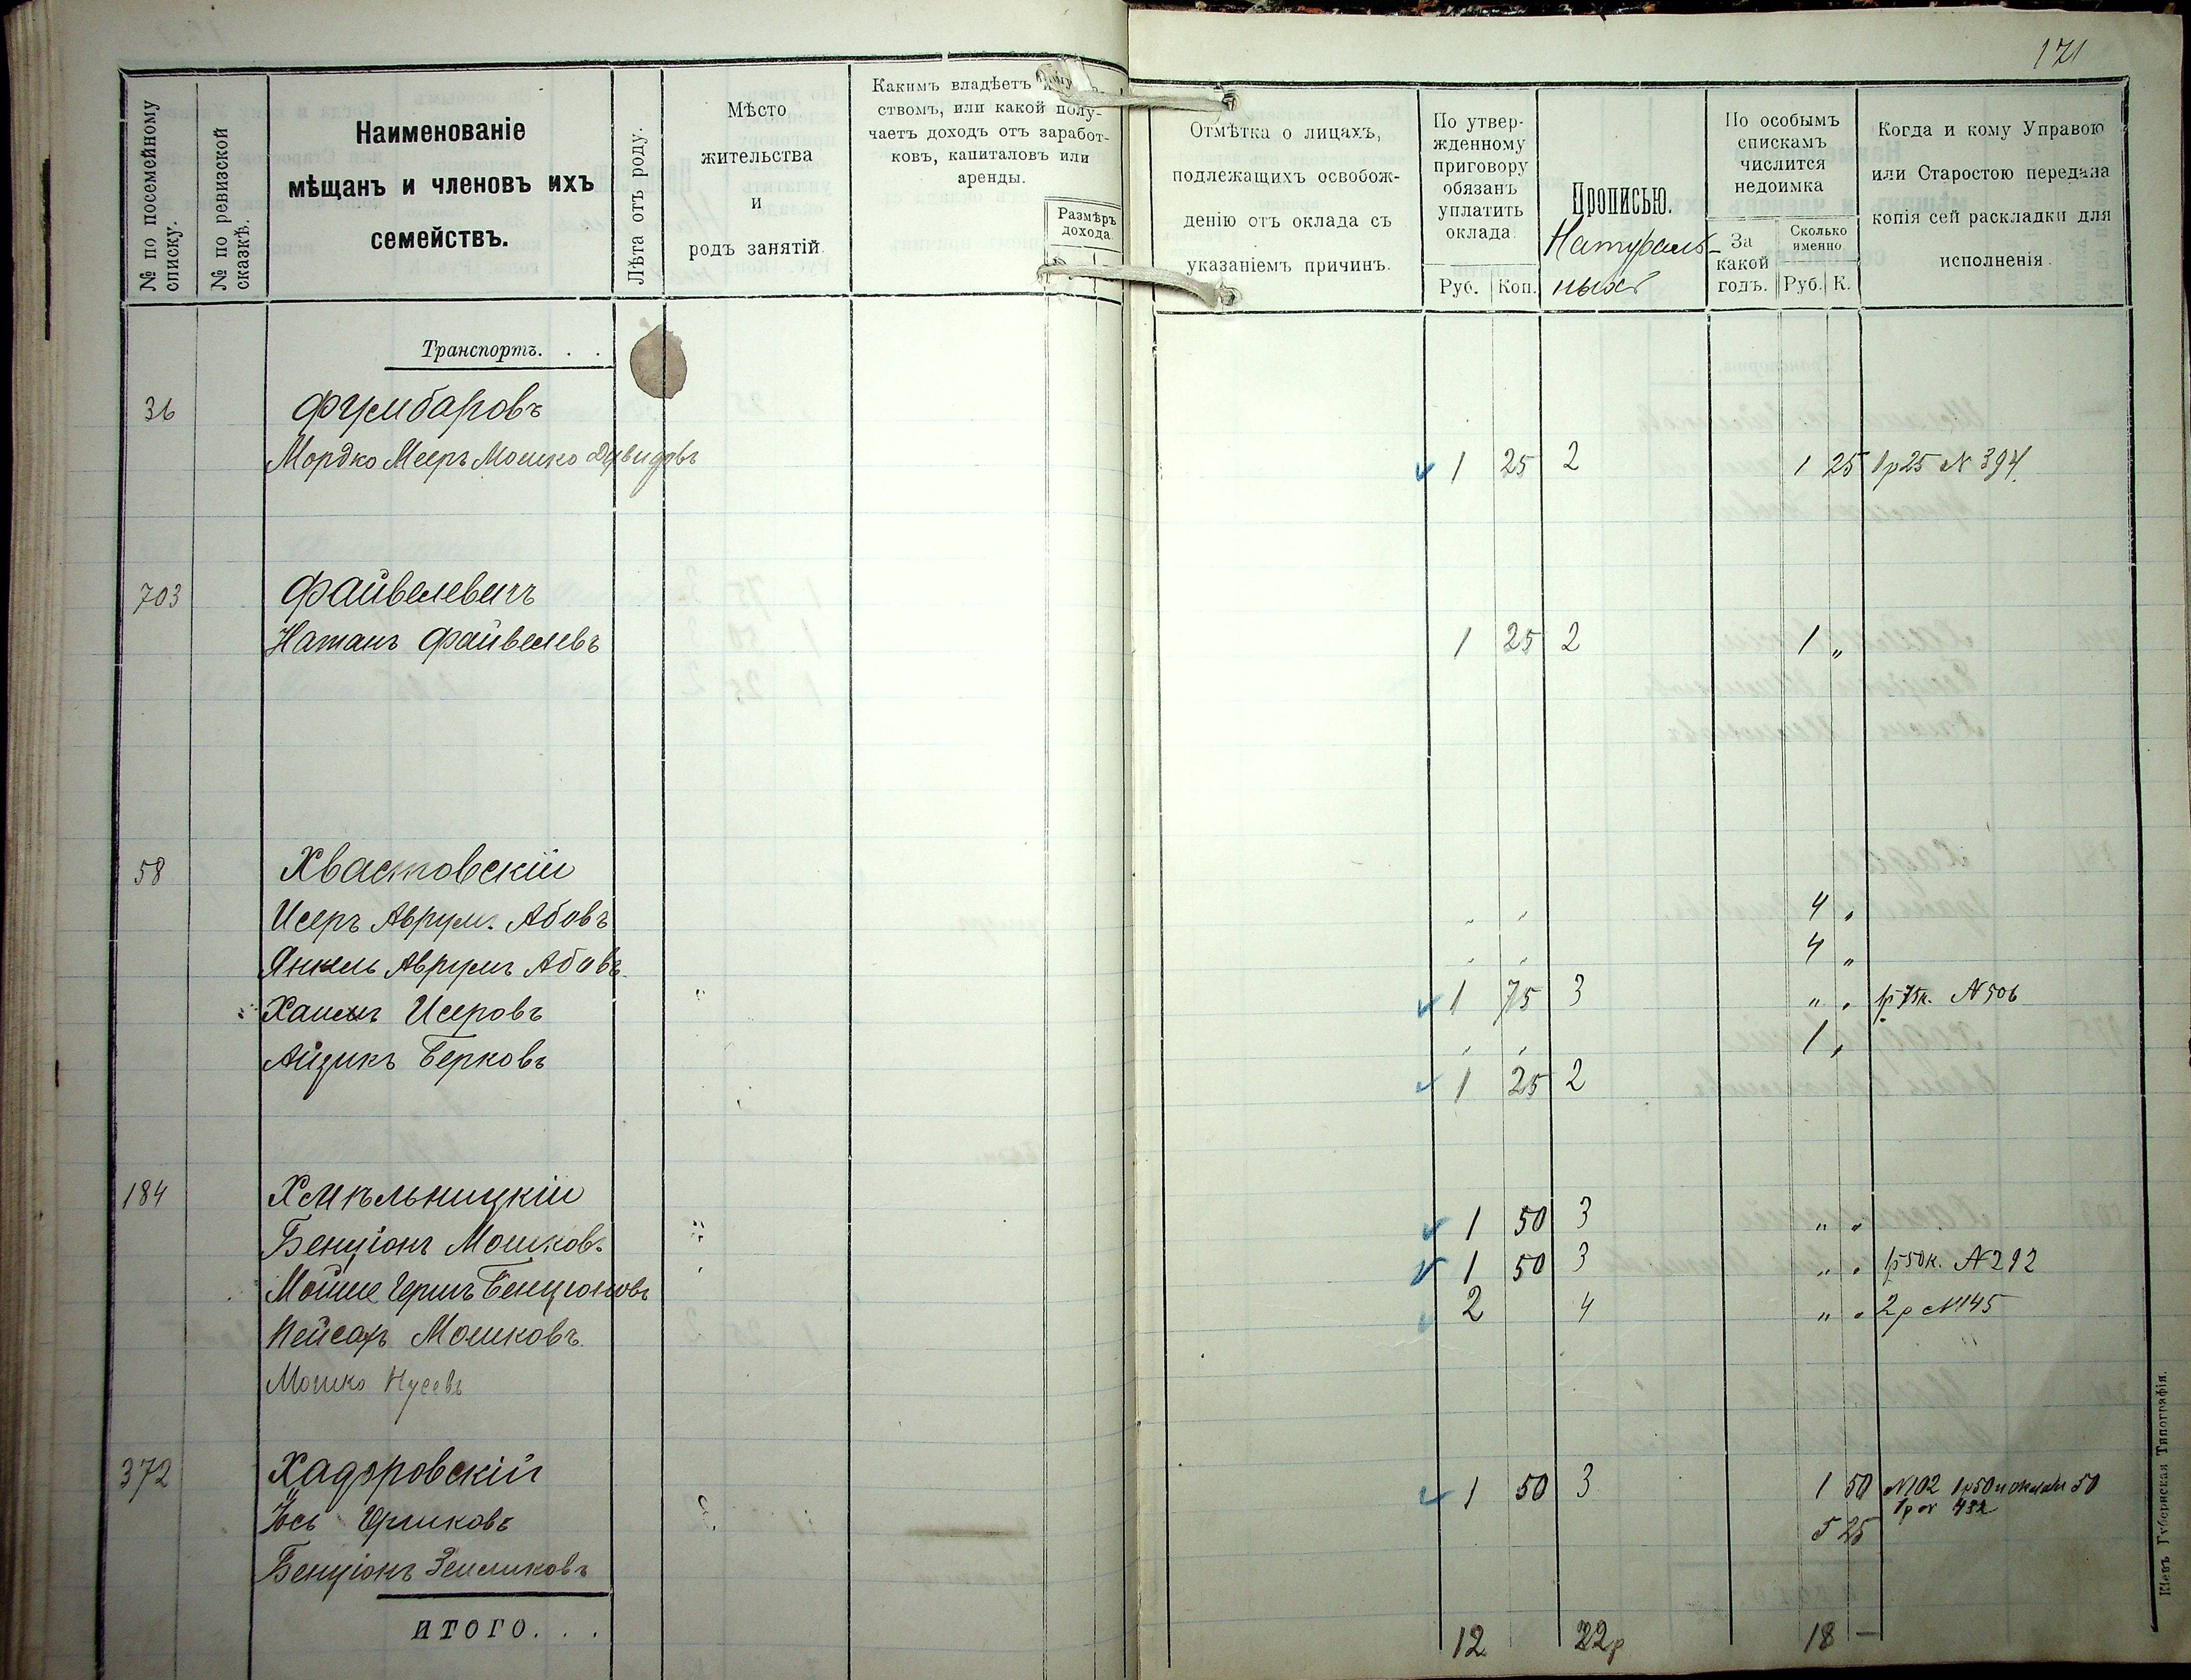 171
№ по посемейному списку.
№ по ревизской сказкѣ.
Наименованіе
мѣщанъ и членовъ ихъ
семействъ.
Лѣта отъ роду.
Мѣсто
жительства
и
родъ занятій.
Какимъ владѣетъ
ствомъ, или какой полу-
чаетъ доходъ отъ заработ-
ковъ, капиталовъ или
аренды.
Размѣръ
дохода.
Отмѣтка о лицахъ,
подлежащихъ освобож-
денію отъ оклада съ
указаніемъ причинъ.
По утвер-
жденному
приговору
обязанъ
уплатить
оклада
Руб. Коп.
Прописью.
Натураль-
ныхъ
По особымъ
спискамъ
числится
недоимка
За
какой
годъ.
Сколько
именно.
Руб. К.
Когда и кому Управою
или Старостою передана
копія сей раскладки для
исполненія.
Транспортъ. . .
36 Фумбаровъ
Мордко Мееръ Мошко Дувидовъ 1 25 2 1 25 1р25 N 394.
703 Файвелевичъ
Натанъ Файвелевъ 1 25 2 1 „
58 Хвастовскій
Исеръ Аврум. Абовъ „ „ 4 „
Янкель Аврумъ Абовъ „ „ 4 „
Хаимъ Исеровъ 1 75 3 „ „ 1р 75к. N 506
„ „ 1 „
Айзикъ Берковъ 1 25 2
184 Хмѣльницкій
Бенціонъ Мошков. 1 50 3 „ „
Мойше Герш Бенціоновъ 1 50 3 „ „ 1р50к. N 292
Пейсахъ Мошковъ 2 4 „ „ 2р N 145
Мошко Нусевъ
372 Хадоровскій 1 50 3 1 50 N102 1р50 50
Іось 5 25 1р 432
Бенціонъ Зейликовъ
ИТОГО. . . 12 22р 18 —
Кіевъ Губернская Типографія.